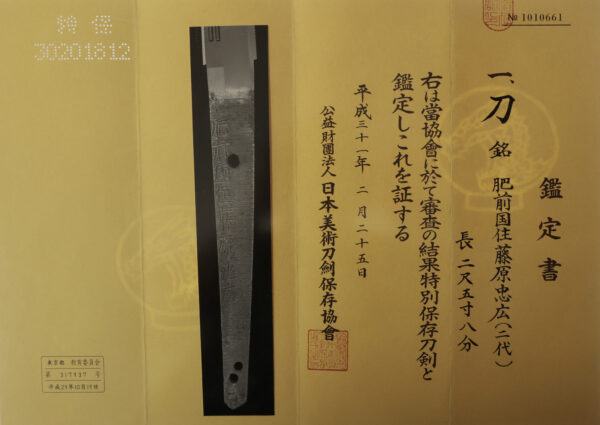 № 1010661
鑑定書
一、刀 銘 肥前国住藤原忠広(二代)
長 二尺五寸八分
右は當協會に於て審査の結果特別保存刀剣と
鑑定しこれを証する
平成三十一年 二月二十五日
公益財團法人 日本美術刀劍保存協會
特保
30201812
東京都 教育委員会
第 317137 号